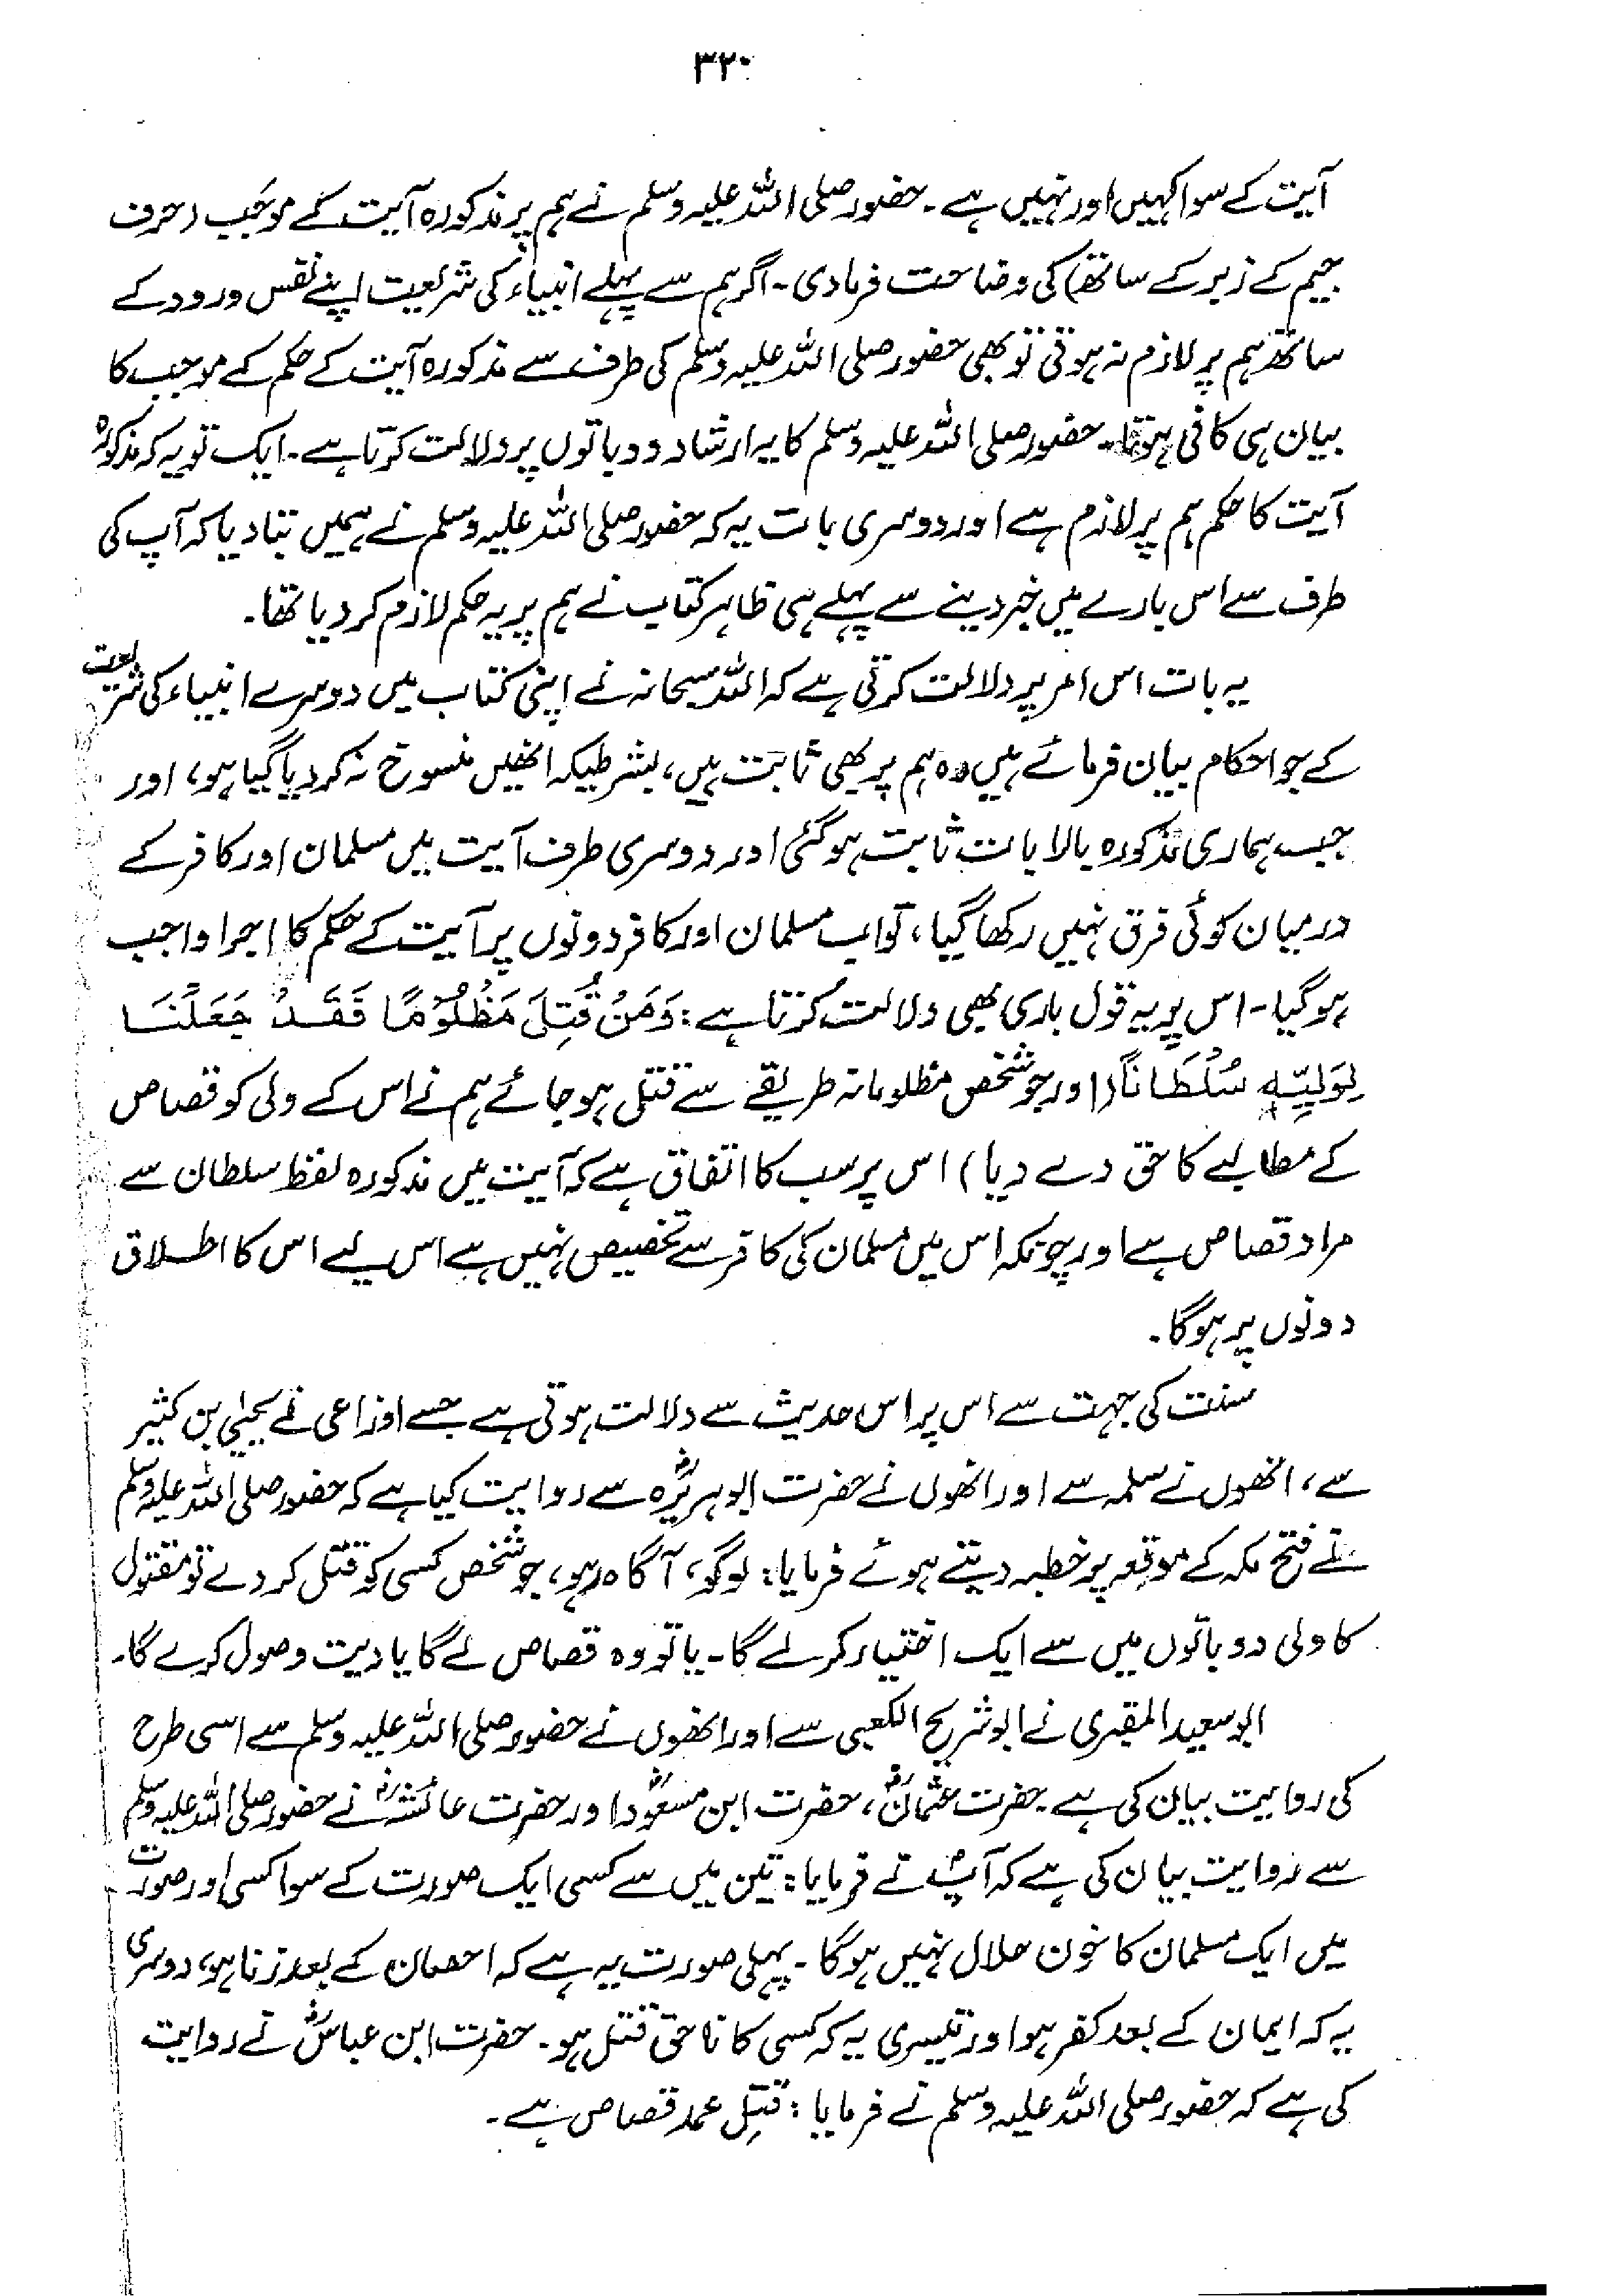 ۳۲۰
آیت کے سوا کہیں اور نہیں ہے۔ حضور صلی اللہ علیہ وسلم نے ہم پر مذکورہ آیت کے موجَب (حرف
جیم کے زبر کے ساتھ) کی وضاحت فرما دی۔ اگر ہم سے پہلے انبیاء کی شریعت اپنے نفس ورود کے
ساتھ ہم پر لازم نہ ہوتی تو بھی حضور صلی اللہ علیہ وسلم کی طرف سے مذکورہ آیت کے حکم کے موجب کا
بیان ہی کافی ہوتا۔ حضور صلی اللہ علیہ وسلم کا یہ ارشاد دو باتوں پر دلالت کرتا ہے۔ ایک تو یہ کہ مذکورہ
آیت کا حکم ہم پر لازم ہے اور دوسری بات یہ کہ حضور صلی اللہ علیہ وسلم نے ہمیں بتا دیا کہ آپ کی
طرف سے اس بارے میں خبر دینے سے پہلے ہی ظاہر کتاب نے ہم پر یہ حکم لازم کر دیا تھا۔
یہ بات اس امر پر دلالت کرتی ہے کہ اللہ سبحانہ نے اپنی کتاب میں دوسرے انبیاء کی شریعت
کے جو احکام بیان فرمائے ہیں وہ ہم پر بھی ثابت ہیں، بشرطیکہ انھیں منسوخ نہ کر دیا گیا ہو، اور
جب ہماری مذکورہ بالا بات ثابت ہو گئی اور دوسری طرف آیت میں مسلمان اور کافر کے
درمیان کوئی فرق نہیں رکھا گیا، تو اب مسلمان اور کافر دونوں پر آیت کے حکم کا اجرا واجب
ہو گیا۔ اس پر یہ قول باری بھی دلالت کرتا ہے: وَمَنْ قُتِلَ مَظْلُوْمًا فَقَدْ جَعَلْنَا
لِوَلِيِّهٖ سُلْطَانًا (اور جو شخص مظلومانہ طریقے سے قتل ہو جائے ہم نے اس کے ولی کو قصاص
کے مطالبے کا حق دے دیا) اس پر سب کا اتفاق ہے کہ آیت میں مذکورہ لفظ سلطان سے
مراد قصاص ہے اور چونکہ اس میں مسلمان کی کافر سے تخصیص نہیں ہے اس لیے اس کا اطلاق
دونوں پر ہوگا۔
سنت کی جہت سے اس پر اس حدیث سے دلالت ہوتی ہے جسے اوزاعی نے یحییٰ بن کثیر
سے، انھوں نے سلمہ سے اور انھوں نے حضرت ابوہریرہؓ سے روایت کیا ہے کہ حضور صلی اللہ علیہ وسلم
نے فتح مکہ کے موقعہ پر خطبہ دیتے ہوئے فرمایا: لوگو، آگاہ رہو، جو شخص کسی کو قتل کر دے تو مقتول
کا ولی دو باتوں میں سے ایک اختیار کر لے گا۔ یا تو وہ قصاص لے گا یا دیت وصول کرے گا۔
ابو سعید المقبری نے ابو شریح الکعبی سے اور انھوں نے حضور صلی اللہ علیہ وسلم سے اسی طرح
کی روایت بیان کی ہے۔ حضرت عثمانؓ، حضرت ابن مسعودؓ اور حضرت عائشہؓ نے حضور صلی اللہ علیہ وسلم
سے روایت بیان کی ہے کہ آپؐ نے فرمایا: تین میں سے کسی ایک صورت کے سوا کسی اور صورت
میں ایک مسلمان کا خون حلال نہیں ہوگا۔ پہلی صورت یہ ہے کہ احصان کے بعد زنا ہو، دوسری
یہ کہ ایمان کے بعد کفر ہو اور تیسری یہ کہ کسی کا ناحق قتل ہو۔ حضرت ابن عباسؓ نے روایت
کی ہے کہ حضور صلی اللہ علیہ وسلم نے فرمایا: قتلِ عمد قصاص ہے۔